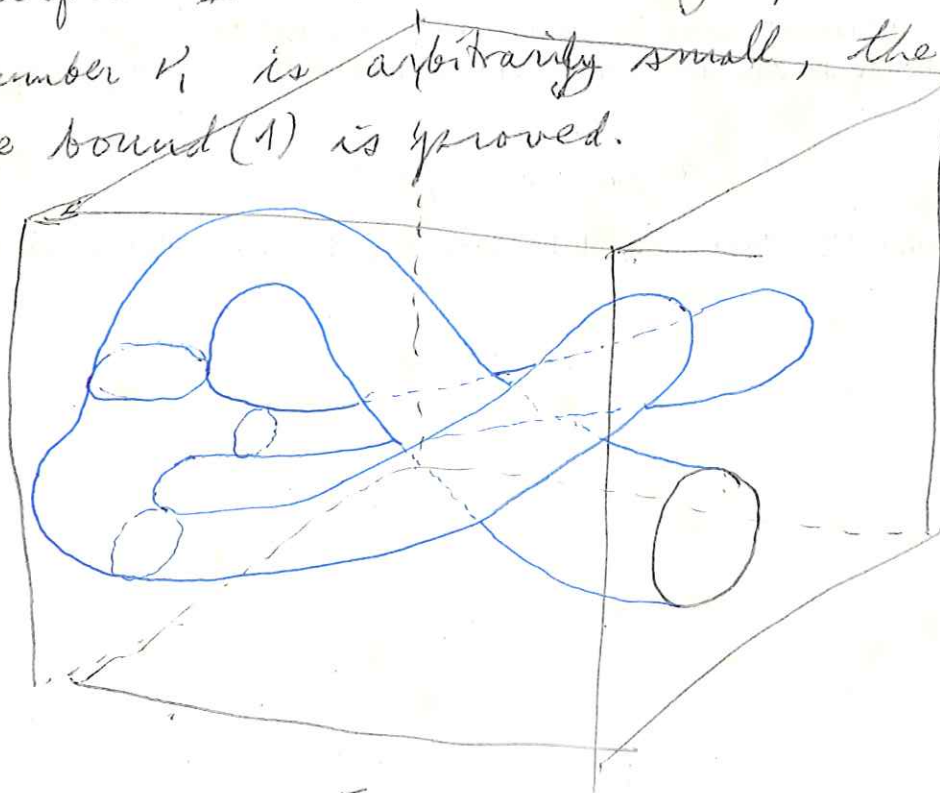 umber ν₁ is arbitrarily small, the
e bound (1) is proved.